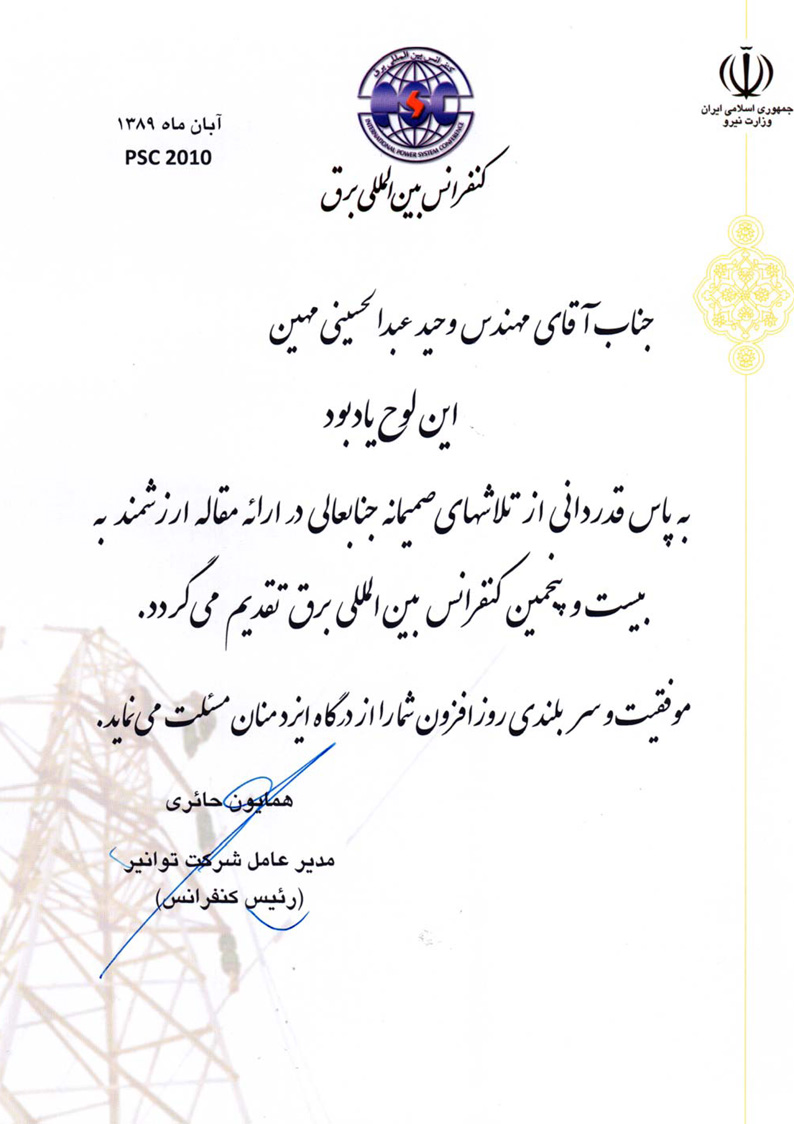 جمهوری اسلامی ایران
وزارت نیرو
کنفرانس بین المللی برق
PSC
INTERNATIONAL POWER SYSTEM CONFERENCE
آبان ماه ۱۳۸۹
PSC 2010
کنفرانس بین المللی برق
جناب آقای مهندس وحید عبدالحسینی مهین
این لوح یادبود
به پاس قدردانی از تلاشهای صمیمانه جنابعالی در ارائه مقاله ارزشمند به
بیست و پنجمین کنفرانس بین المللی برق تقدیم می گردد.
موفقیت و سر بلندی روز افزون شما را از درگاه ایزد منان مسئلت می نماید.
همایون حائری
مدیر عامل شرکت توانیر
(رئیس کنفرانس)